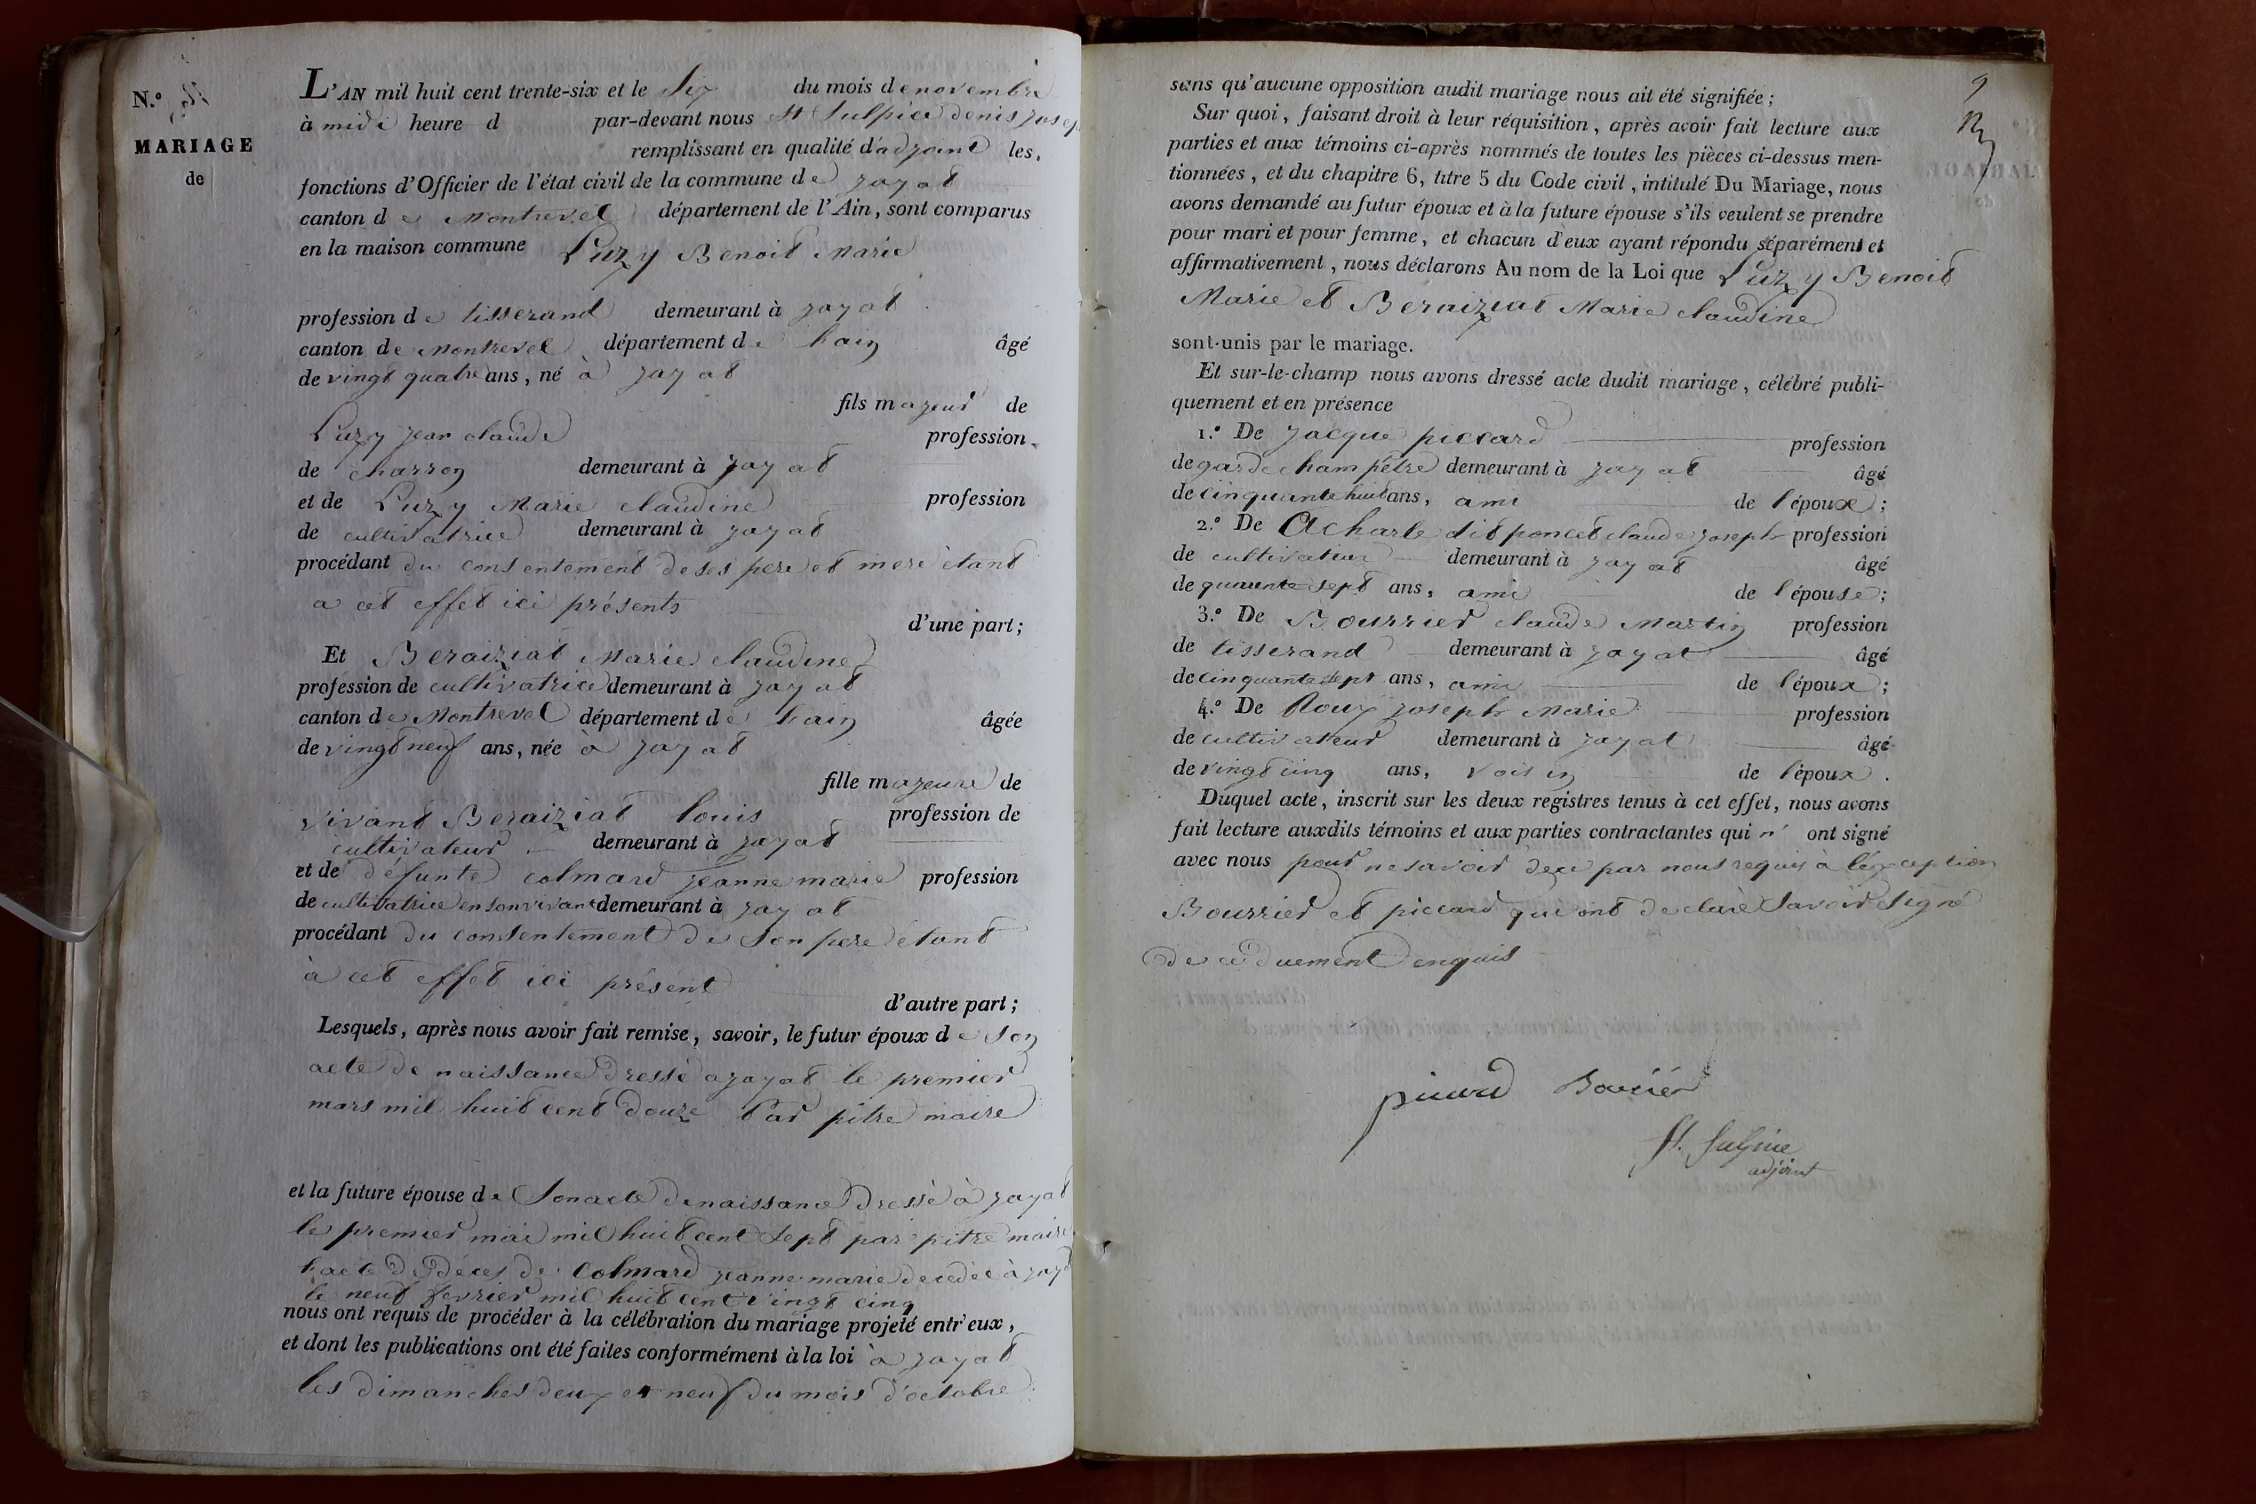 N.º
MARIAGE
de
L'AN mil huit cent trente-six et le six du mois de novembre
à midi heure d par-devant nous St Sulpice denis josep
remplissant en qualité d'adjoint les
fonctions d'Officier de l'état civil de la commune de jayat
canton de Montrevel département de l'Ain, sont comparus
en la maison commune Luzy Benoit Marie
profession de tisserand demeurant à jayat
canton de Montrevel département de l'ain âgé
de vingt quatre ans, né à jayat
fils majeur de
Luzy jean claude profession
de charron demeurant à jayat
et de Luzy Marie claudine profession
de cultivatrice demeurant à jayat
procédant du consentement de ses pere et mere étant
a cet effet ici présents
d'une part;
Et Beraiziat Marie claudine
profession de cultivatrice demeurant à jayat
canton de Montrevel département de l'ain âgée
de vingt neuf ans, née à jayat
fille majeure de
vivant Beraiziat louis profession de
cultivateur demeurant à jayat
et de défunte colmard jeanne marie profession
de cultivatrice en son vivant demeurant à jayat
procédant du consentement de son pere étant
à cet effet ici présent
d'autre part;
Lesquels, après nous avoir fait remise, savoir, le futur époux de son
acte de naissance dressé a jayat le premier
mars mil huit cent douze par pitre maire
et la future épouse de son acte de naissance dressé à jayat
le premier mai mil huit cent sept par pitre maire
l'acte de déces de colmard jeanne marie decedée à jayat
le neuf fevrier mil huit cent vingt cinq
nous ont requis de procéder à la célébration du mariage projeté entr'eux,
et dont les publications ont été faites conformément à la loi à jayat
les dimanches deux et neuf du mois d'octobre
9
sans qu'aucune opposition audit mariage nous ait été signifiée;
Sur quoi, faisant droit à leur réquisition, après avoir fait lecture aux
parties et aux témoins ci-après nommés de toutes les pièces ci-dessus men-
tionnées, et du chapitre 6, titre 5 du Code civil, intitulé Du Mariage, nous
avons demandé au futur époux et à la future épouse s'ils veulent se prendre
pour mari et pour femme, et chacun d'eux ayant répondu séparément et
affirmativement, nous déclarons Au nom de la Loi que Luzy Benoit
Marie et Beraiziat Marie claudine
sont unis par le mariage.
Et sur-le-champ nous avons dressé acte dudit mariage, célébré publi-
quement et en présence
1.º De jacque piccard profession
de garde champêtre demeurant à jayat âgé
de cinquante huit ans, ami de l'époux;
2.º De Acharle dit poncet claude joseph profession
de cultivateur demeurant à jayat âgé
de quarente sept ans, ami de l'épouse;
3.º De Bourrier claude Martin profession
de tisserand demeurant à jayat âgé
de cinquante sept ans, ami de l'époux;
4.º De Roux joseph Marie profession
de cultivateur demeurant à jayat âgé
de vingt cinq ans, voisin de l'époux.
Duquel acte, inscrit sur les deux registres tenus à cet effet, nous avons
fait lecture auxdits témoins et aux parties contractantes qui n' ont signé
avec nous pour ne savoir dece par nous requis à l'exception
Bourrier et piccard qui ont declaré savoir signé
de ce duement enquis
picard Bourier
St. Sulpice
adjoint